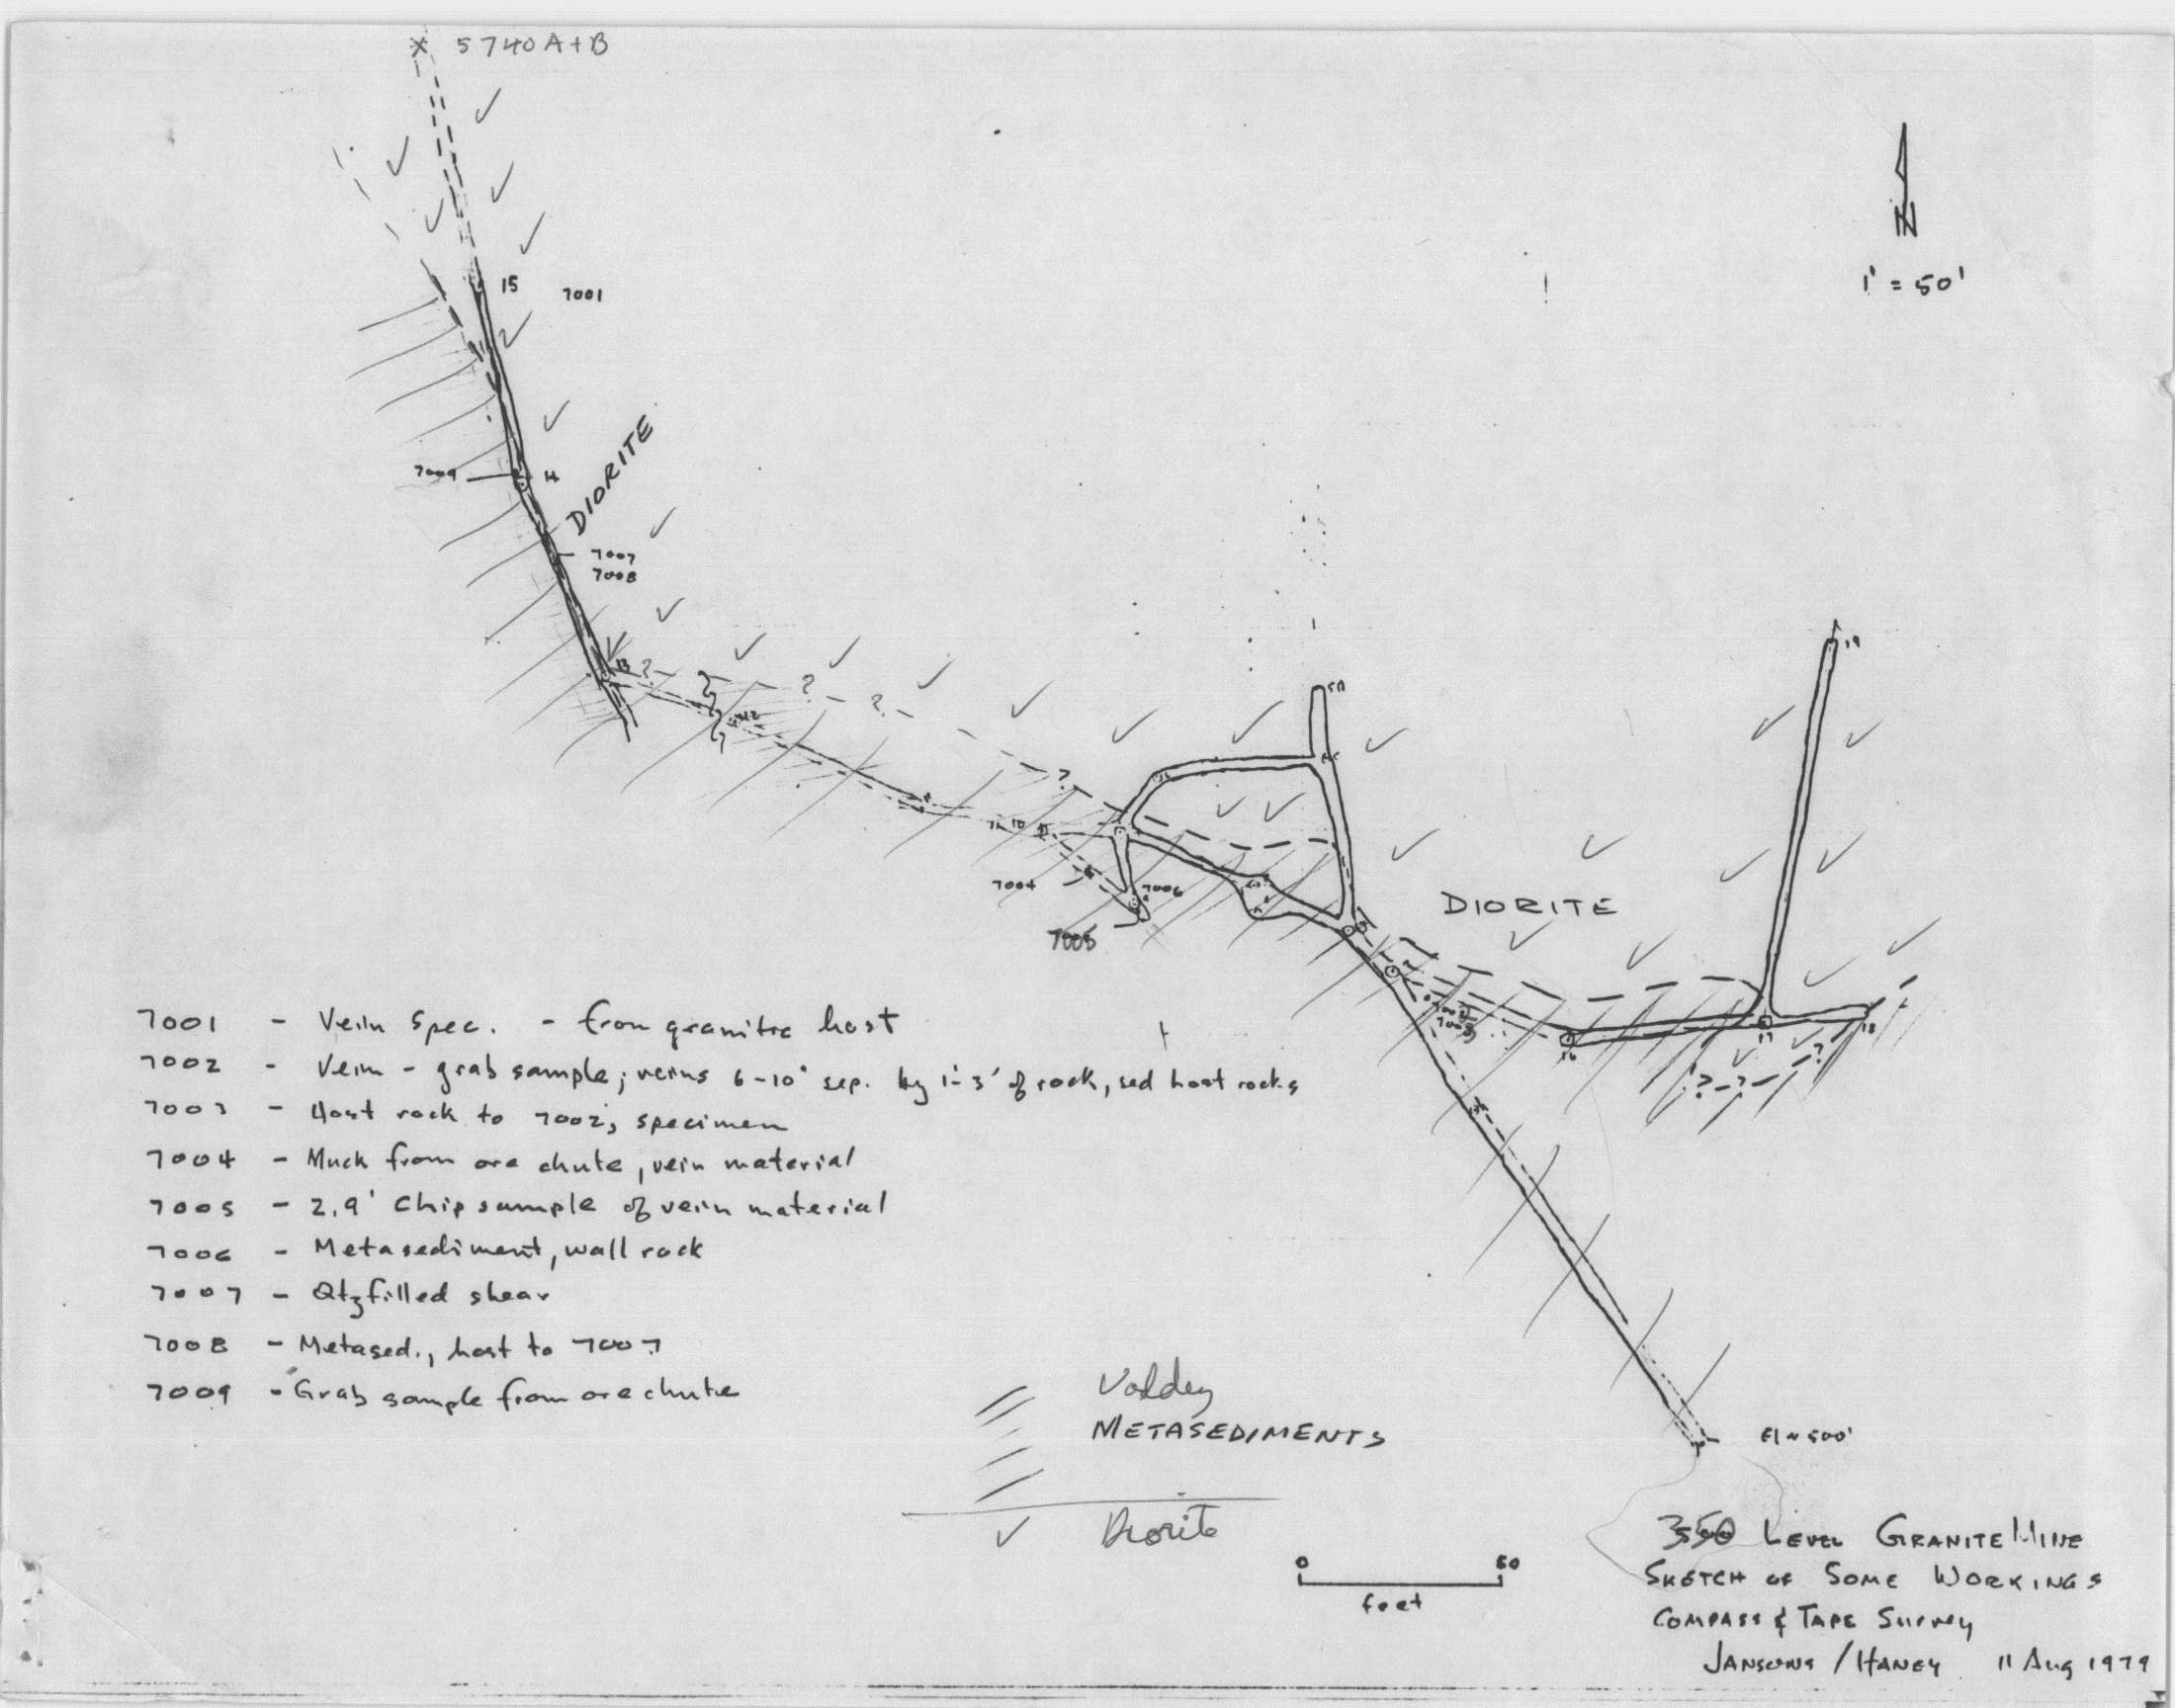 X 5740 A+B
N
1' = 50'
15
7001
7009
14
DIORITE
7007
7008
13
?
?
?
12
?
5A
19
11 10
7004
7006
7005
DIORITE
7002
7003
16
17
18
?
? - ? -
7001 - Vein Spec. - from granitic host
7002 - Vein - grab sample; veins 6-10" sep. by 1'-3' of rock, sed host rocks
7003 - Host rock to 7002; specimen
7004 - Muck from ore chute, vein material
7005 - 2.9' Chip sample of vein material
7006 - Metasediment, wall rock
7007 - Qtz filled shear
7008 - Metased., host to 7007
7009 - Grab sample from ore chute
Valdez
METASEDIMENTS
Diorite
El ~ 500'
0 50
feet
350 LEVEL GRANITE MINE
SKETCH OF SOME WORKINGS
COMPASS & TAPE SURVEY
JANSONS / HANEY 11 Aug 1979